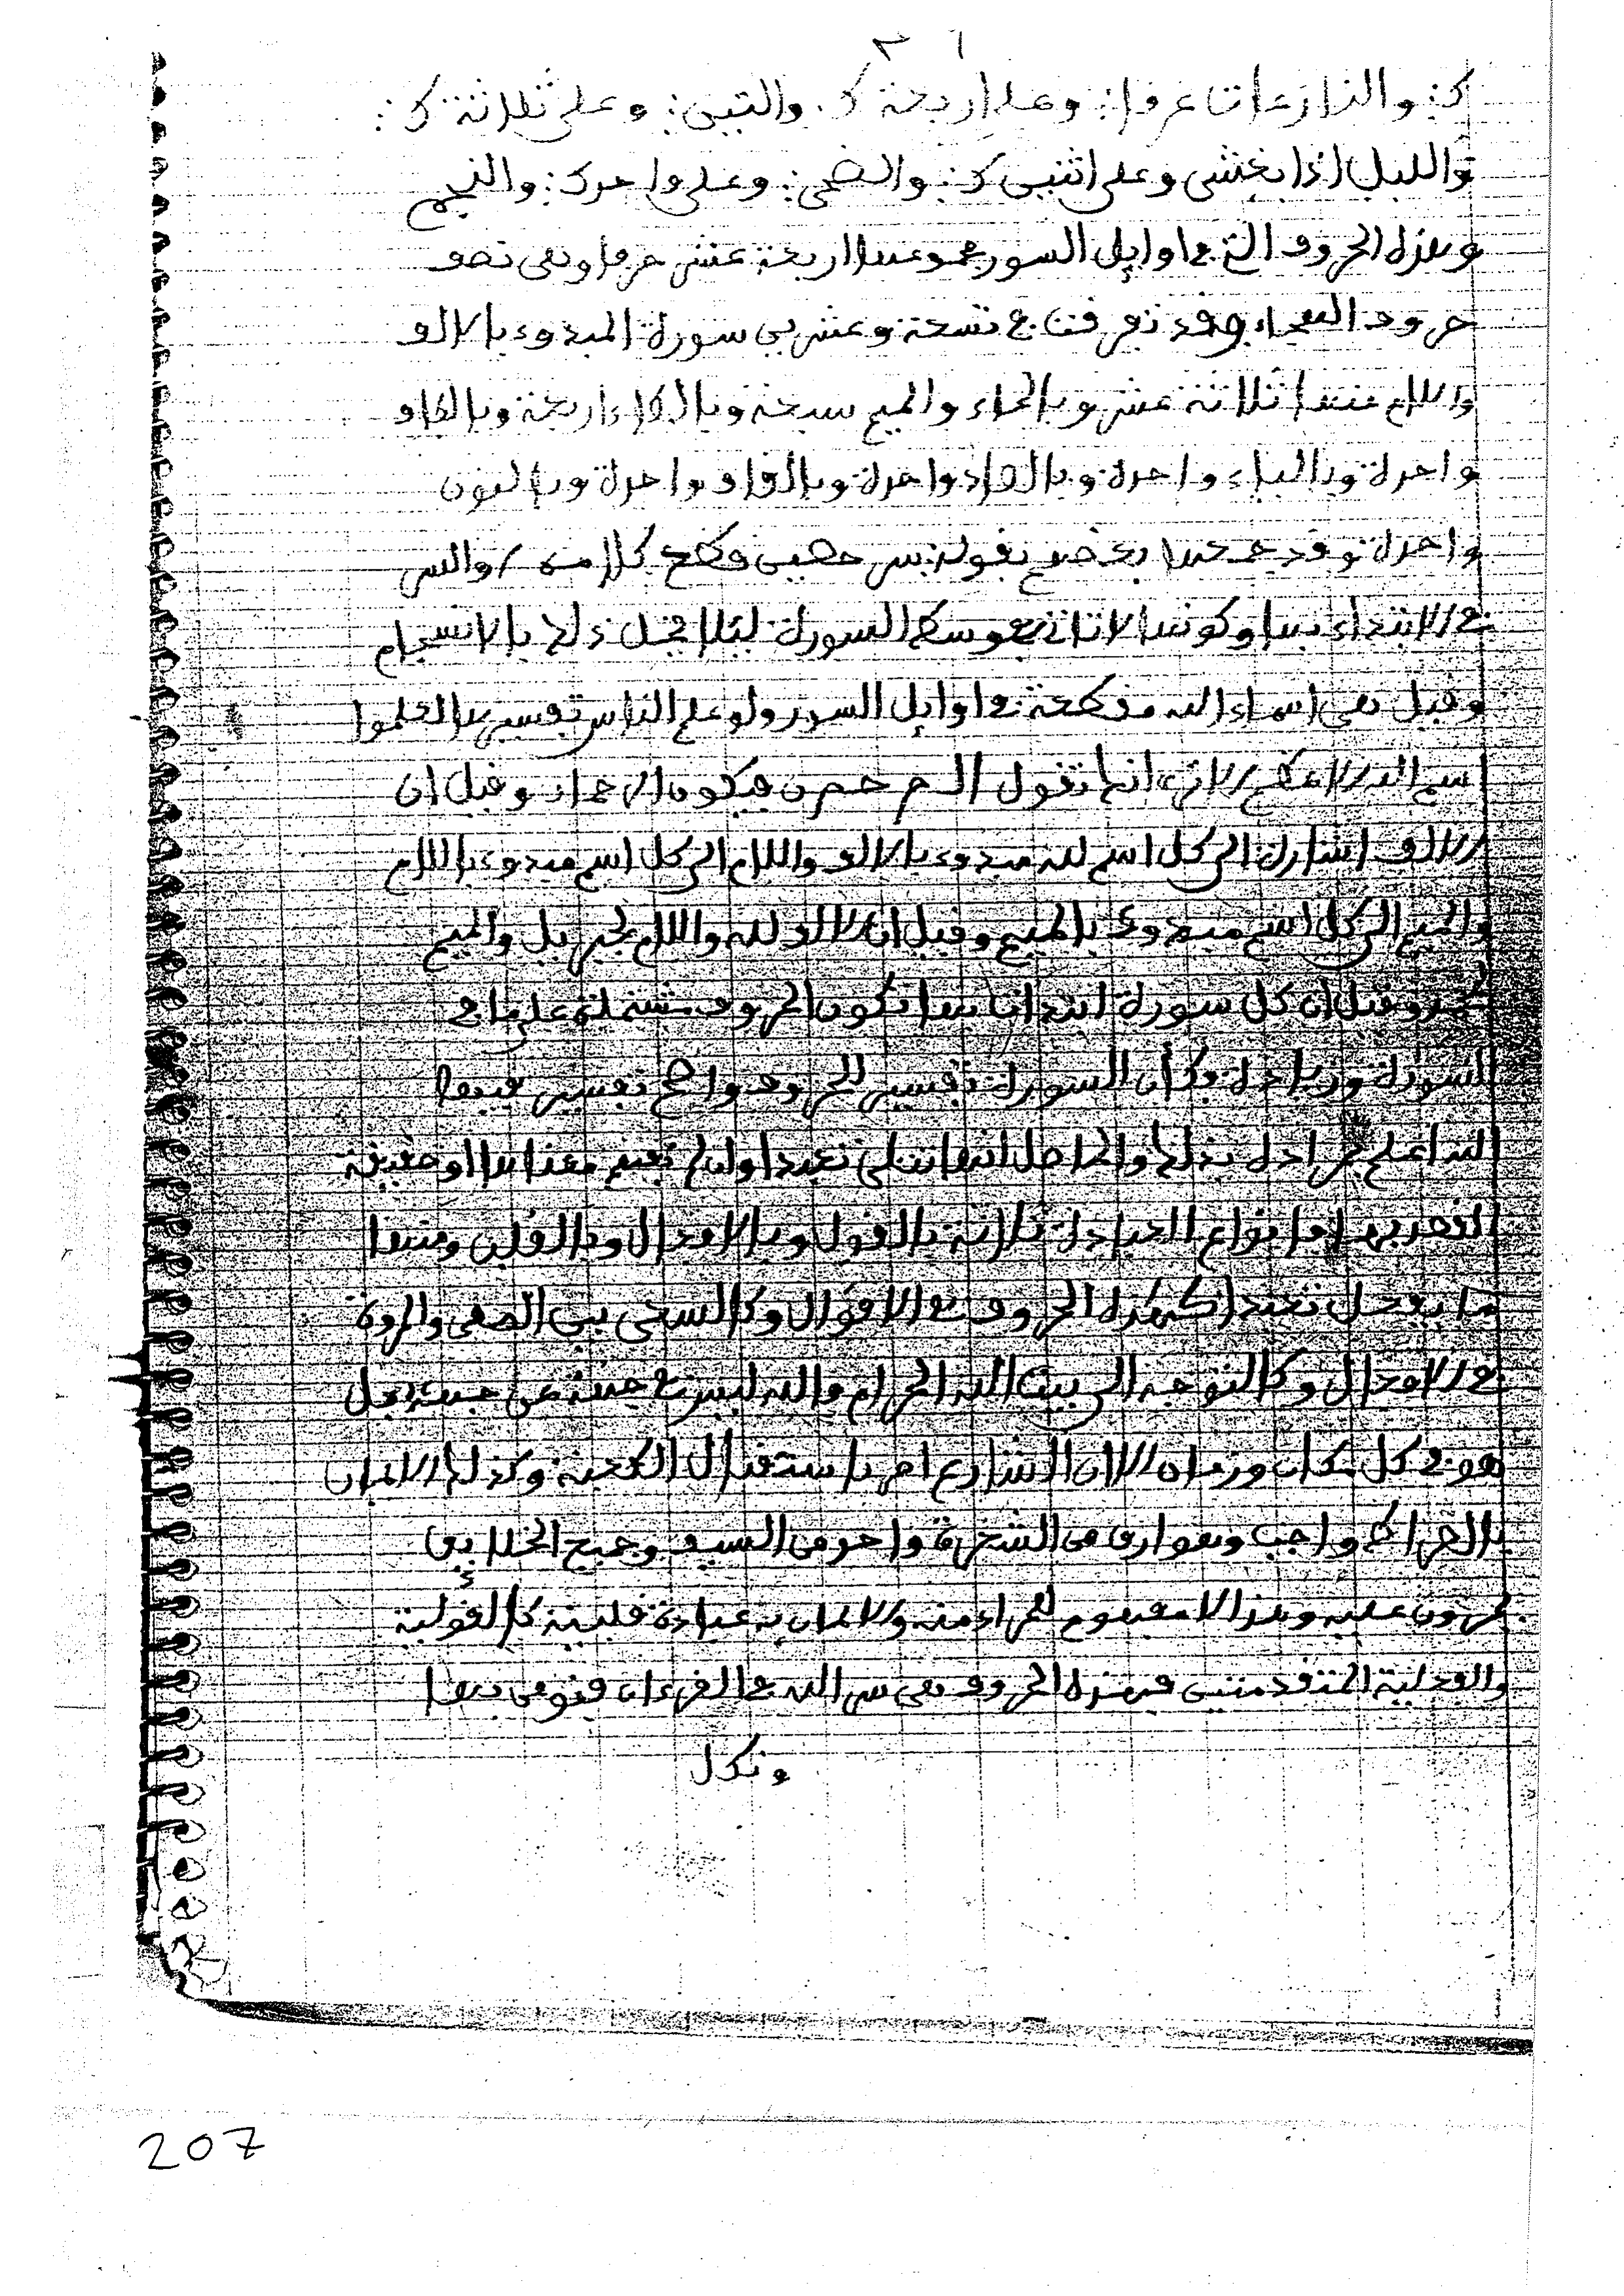 كـ: والنازعات غرفا: وعلى اربعة كـ: والتين: وعلى ثلاثة كـ:
والليل اذا يغشى وعلى اثنين كـ: والضحى: وعلى واحد كـ: والنجم
وهذه الحروف التي في اوايل السور مجموعها اربعة عشر حرفا وهي نصف
حروف الهجاء وقد تفرقت في تسعة وعشرين سورة المبدوء بالالف
واللام منها ثلاثة عشر وبالحاء والميم سبعة وبالطاء اربعة وبالكاف
واحدة وبالياء واحدة وبالصاد واحدة وبالقاف واحدة وبالنون
واحدة وقد جمعها بعضهم بقوله: سر حصين قطع كلامه والسر
في الابتداء بها وكونها لا تاتي في وسط السورة ليلا يخل ذلك بالانسجام
وقيل هي اسماء الله مقطعة في اوايل السور ولو علم الناس تفسيرها لعلموا
اسم الله الاعظم الا ترى انك تقول الر حم ن فيكون الرحمان وقيل ان
الالف اشارة الى كل اسم لله مبدوء بالالف واللام الى كل اسم مبدوء باللام
والميم الى كل اسم مبدوء بالميم وقيل ان الالف لله واللام لجبريل والميم
لمحمد وقيل ان كل سورة ابتدات بها تكون الحروف مشتملة على ما في
السورة وزيادة فكأن السورة تفسير للحروف واضح تفسير فيها
الله اعلم بمراده بذلك والحاصل انها تتلى تعبدا وان لم يفهم معناها او حقيقة
التقريب اما انواع العبادة ثلاثة بالقول وبالافعال وبالقلب ومنها
ما يفعل تعبدا كهذه الحروف في الاقوال وكالسعي بين الصفى والمروة
في الافعال وكالتوجه الى بيت الله الحرام والله ليس في جهة عن جهة بل
هو في كل مكان وزمان الا ان الشارع امر باستقبال الكعبة وكذلك الايمان
بالصراط واجب وهو ارق من الشعرة واحد من السيف وجميع الخلايق
يمرون عليه وهذا لا مفهوم للمراد منه والايمان به عبادة قلبية كالقولية
والفعلية المتقدمتين فهذه الحروف هي سر الله في القرءان فنومن بها
ونكل
207